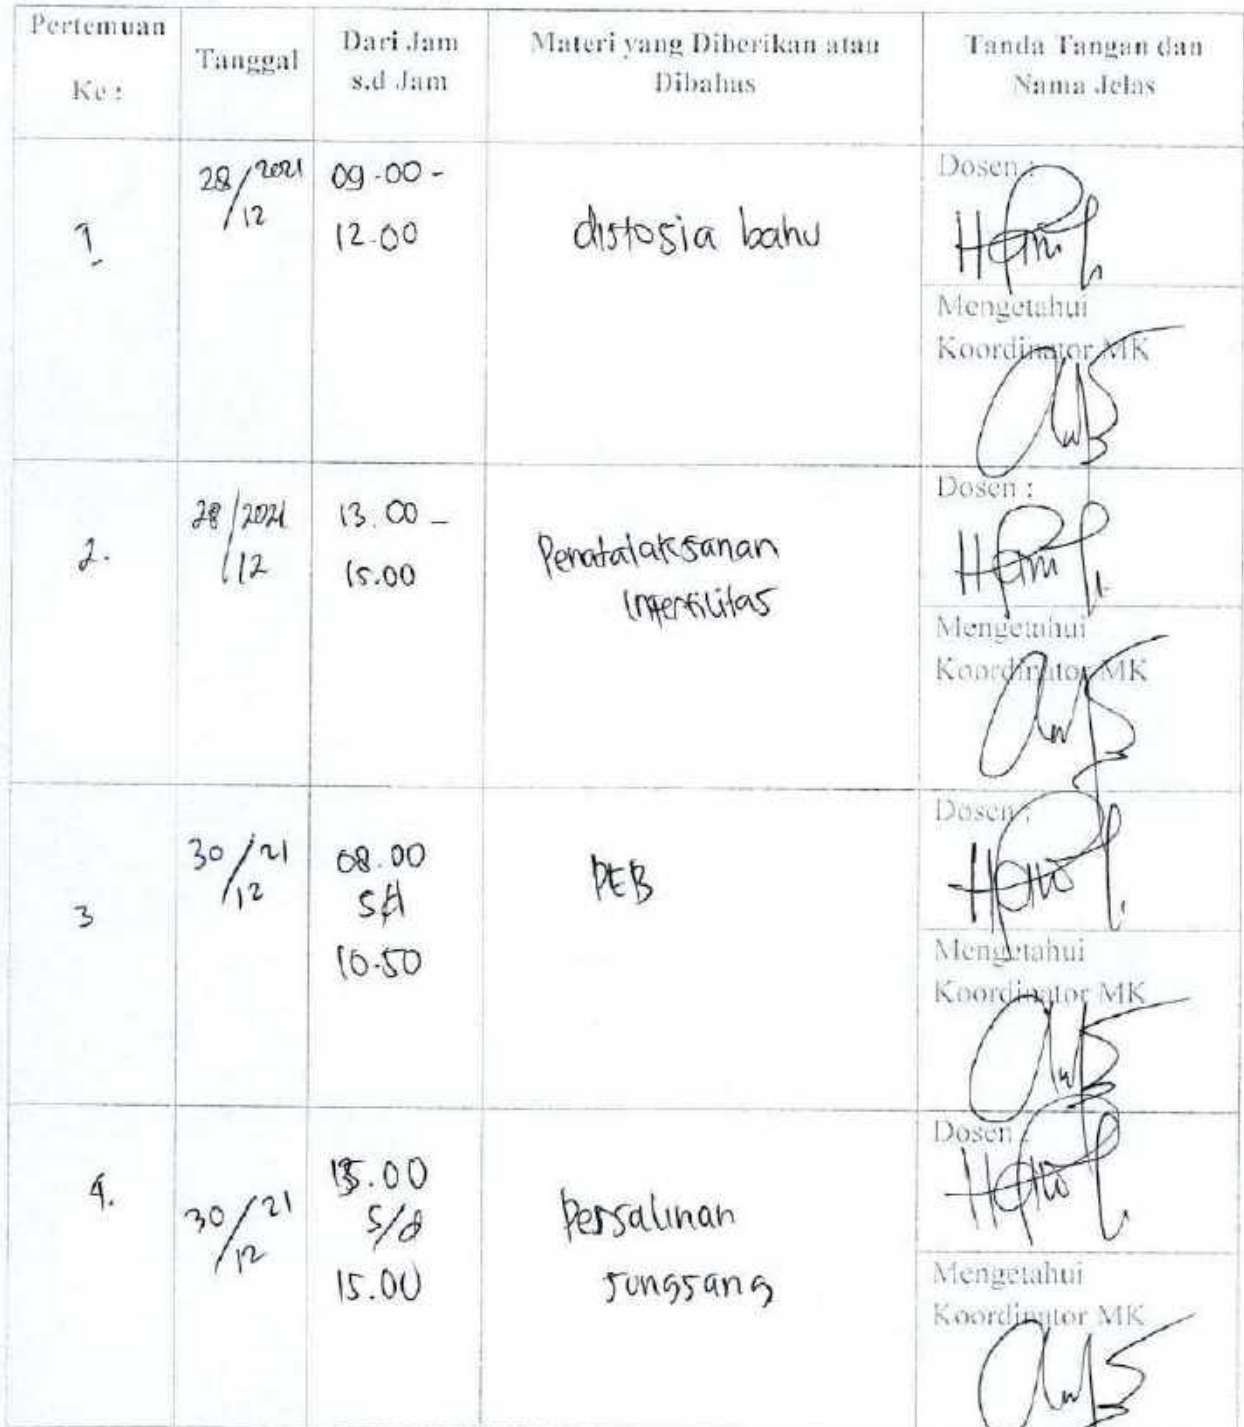 Pertemuan
Ke :
Tanggal
Dari Jam
s.d Jam
Materi yang Diberikan atau
Dibahas
Tanda Tangan dan
Nama Jelas
1
28/2021
12
09.00 -
12.00
distosia bahu
Dosen :
Mengetahui
Koordinator MK
2.
28/2021
12
13.00 -
15.00
Penatalaksanan
Infertilitas
Dosen :
Mengetahui
Koordinator MK
3
30/21
12
08.00
s/d
10.50
PEB
Dosen :
Mengetahui
Koordinator MK
4.
30/21
12
s/d
15.00
Persalinan
sungsang
Dosen :
Mengetahui
Koordinator MK